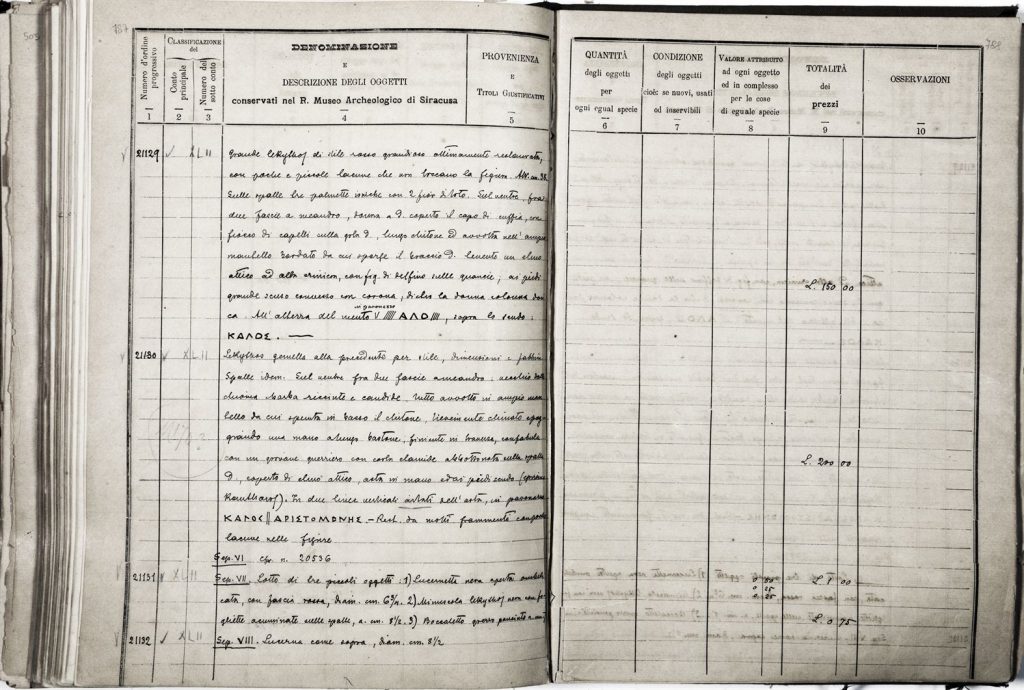 505
787
788
Numero d'ordine progressivo
CLASSIFICAZIONE
del
Conto principale
Numero del sotto conto
DENOMINAZIONE
E
DESCRIZIONE DEGLI OGGETTI
conservati nel R. Museo Archeologico di Siracusa
PROVENIENZA
E
TITOLI GIUSTIFICATIVI
1 2 3 4 5
QUANTITÀ
degli oggetti
per
ogni egual specie
CONDIZIONE
degli oggetti
cioè: se nuovi, usati
od inservibili
VALORE ATTRIBUITO
ad ogni oggetto
ed in complesso
per le cose
di eguale specie
TOTALITÀ
dei
prezzi
OSSERVAZIONI
6 7 8 9 10
21129 XLII Grande lekythos di stile rosso grandioso ottimamente restaurata,
con poche e piccole lacune che non toccano la figura. Alt. cm. 38.
Sulle spalle tre palmette ioniche con 2 fiori di loto. Sul ventre, fra
due fascie a meandro, donna a D. coperto il capo di cuffia, con
fiocco di capelli sulla gola D, lungo chitone ed avvolta nell'ampio
mantello bordato da cui sporge il braccio D. tenente un elmo
attico ad alta crinicra, con fig. di delfino sulle guancie; ai piedi
grande scudo convesso con corona, dietro la donna colonna
ca. All'altezza del mento V ΑΛΟ, sopra lo scudo:
in paonazzo
ΚΑΛΟΣ.
L. 150 00
21130 XLII Lekythos gemella alla precedente per stile, dimensioni e
Spalle idem. Sul ventre fra due fascie a meandro: vecchio
chioma barba e candide, tutto avvolto in ampio
da cui spunta in basso il chitone,
una mano a lungo bastone, finiente in traversa,
con un giovane guerriero con corta clamide abbottonata sulla spalla
D., coperto di elmo attico, asta in mano ed ai piedi scudo
Kantharos). In due linee verticali ai lati dell'asta, in paonazzo
ΚΑΛΟΣ ΑΡΙΣΤΟΜΟΝΗΣ. - Rest. da molti frammenti
lacune nelle figure
L. 200 00
Sep. VI cfr. n. 20536
21131 XLII Sep. VII. Lotto di tre piccoli oggetti: 1) Lucernetta nera aperta
cata, con fascia rossa, diam. cm. 6½. 2) Minuscola lekythos nera con
ghiette acuminate sulle spalle, a. cm. 8½. 3) Boccaletto grezzo
0 50
0 25
0 25
L. 1 00
21132 XLII Sep. VIII. Lucerna come sopra, diam. cm. 8½
L. 0 75